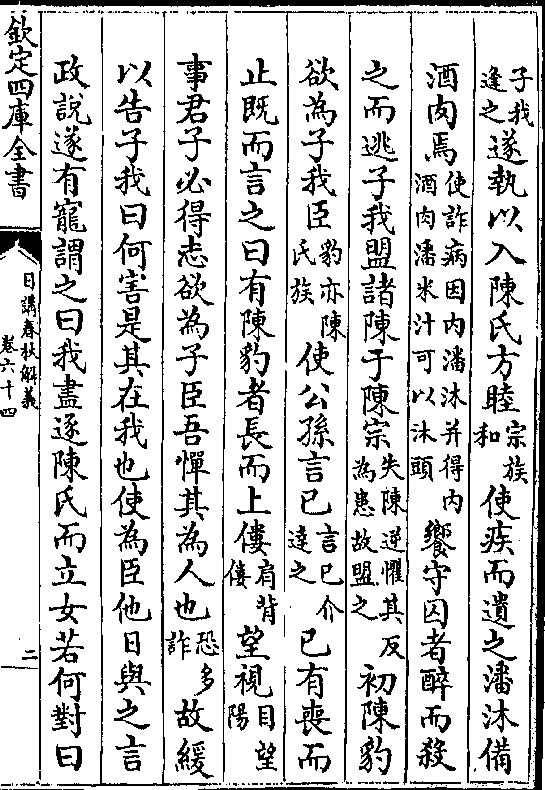 子我逢之遂執以入陳氏方睦宗族和使疾而遺之潘沐備
酒肉焉使詐病因内潘沐并得内酒肉潘米汁可以沐頭饗守囚者醉而殺
之而逃子我盟諸陳于陳宗失陳逆懼其反為患故盟之初陳豹
欲為子我臣豹亦陳氏族使公孫言已言已介達之已有喪而
止既而言之曰有陳豹者長而上僂肩背僂望視目望陽
事君子必得志欲為子臣吾憚其為人也恐多詐故緩
以告子我曰何害是其在我也使為臣他日與之言
政說遂有寵謂之曰我盡逐陳氏而立女若何對曰
欽定四庫全書
日講春秋解義
卷六十四
二